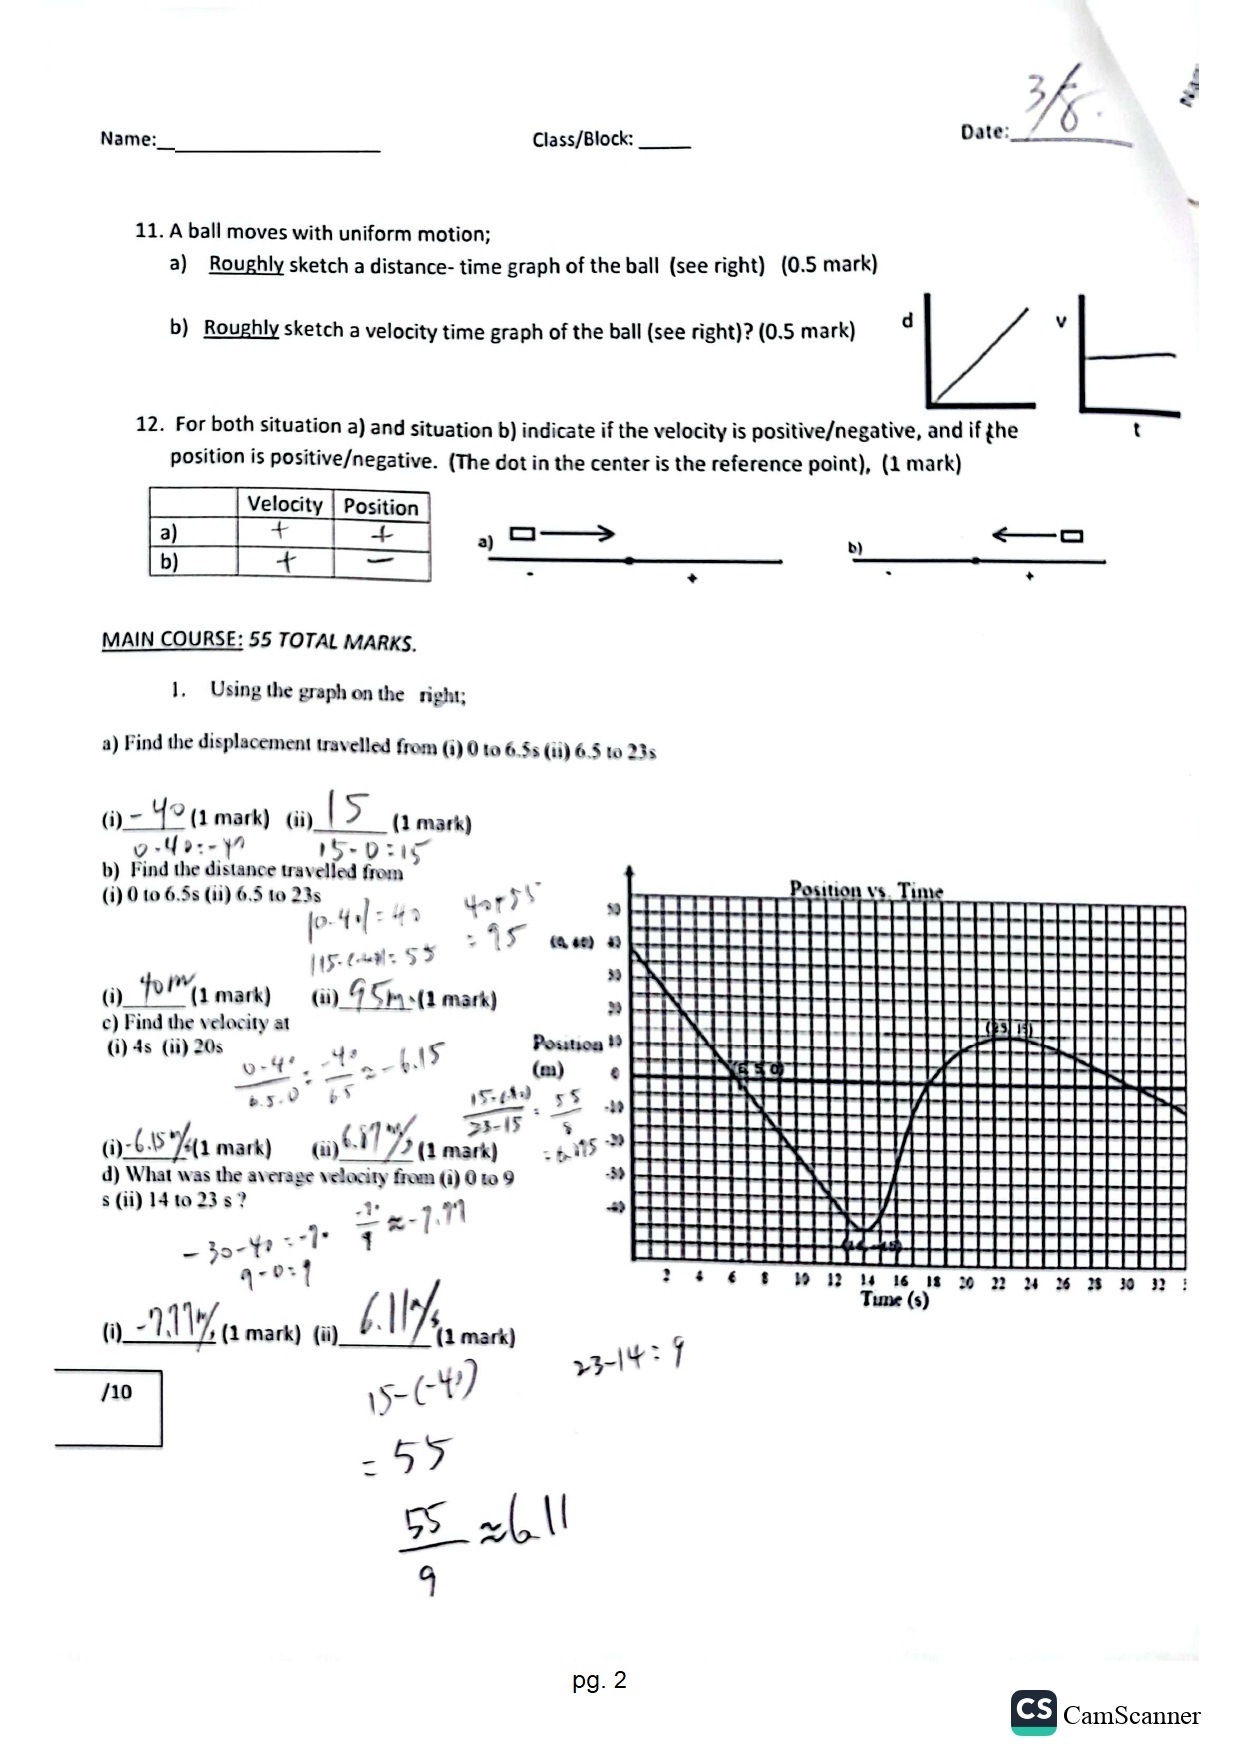 3/8.
Name:___________________ Class/Block: _____ Date:__________
11. A ball moves with uniform motion;
a) Roughly sketch a distance- time graph of the ball (see right) (0.5 mark)
b) Roughly sketch a velocity time graph of the ball (see right)? (0.5 mark)
d v
t
12. For both situation a) and situation b) indicate if the velocity is positive/negative, and if the
position is positive/negative. (The dot in the center is the reference point), (1 mark)
Velocity Position
a) + +
b) + −
a) - +
b) - +
MAIN COURSE: 55 TOTAL MARKS.
1. Using the graph on the right;
a) Find the displacement travelled from (i) 0 to 6.5s (ii) 6.5 to 23s
(i) -40 (1 mark) (ii) 15 (1 mark)
0-40=-40 15-0=15
b) Find the distance travelled from
(i) 0 to 6.5s (ii) 6.5 to 23s
|0-40|=40 40+55
|15-(-40)|=55 =95
(i) 40m (1 mark) (ii) 95m. (1 mark)
c) Find the velocity at
(i) 4s (ii) 20s
0-40/6.5-0 = -40/6.5 ≈ -6.15
15-(-40)/23-15 = 55/8
=6.875
(i) -6.15m/s (1 mark) (ii) 6.87m/s (1 mark)
d) What was the average velocity from (i) 0 to 9
s (ii) 14 to 23 s ?
-30-40=-70 -70/9 ≈-7.77
9-0=9
(i) -7.77m/s (1 mark) (ii) 6.11m/s (1 mark)
Position vs. Time
50
(0, 40) 40
30
20
Position 10
(m) 0
-10
-20
-30
-40
(6.5, 0)
(23, 15)
2 4 6 8 10 12 14 16 18 20 22 24 26 28 30 32
Time (s)
23-14=9
/10
15-(-40)
=55
55/9 ≈6.11
pg. 2
CS CamScanner